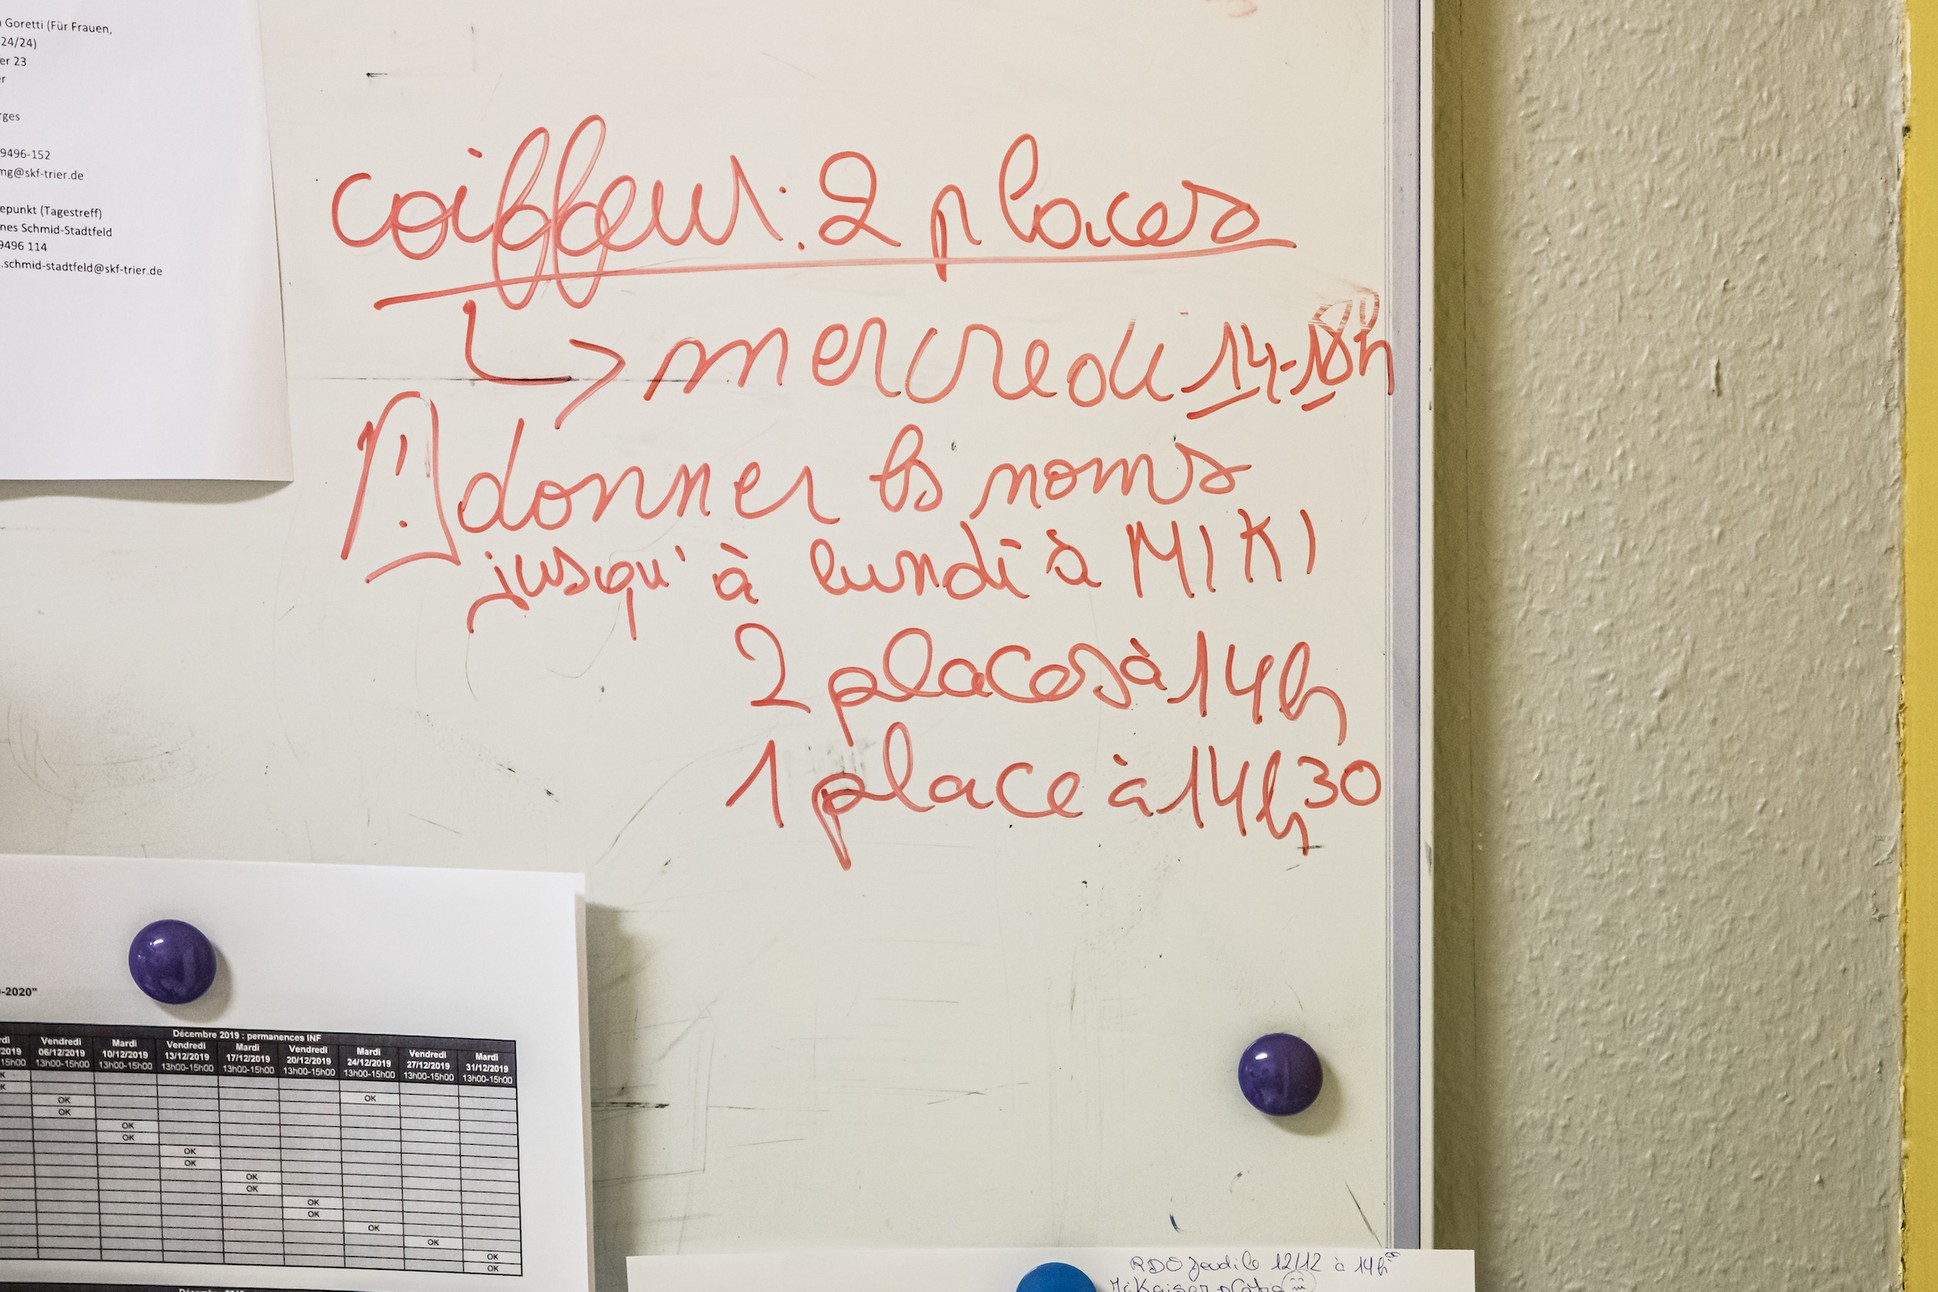 Goretti (Für Frauen,
24/24)
er 23
er
rges
9496-152
mg@skf-trier.de
epunkt (Tagestreff)
nes Schmid-Stadtfeld
9496 114
.schmid-stadtfeld@skf-trier.de
coiffeur: 2 places
mercredi 14-18h
! donner les noms
jusqu'à lundi à MIKI
2 places à 14h
1 place à 14h30
-2020"
Décembre 2019 : permanences INF
rdi Vendredi Mardi Vendredi Mardi Vendredi Mardi Vendredi Mardi
2019 06/12/2019 10/12/2019 13/12/2019 17/12/2019 20/12/2019 24/12/2019 27/12/2019 31/12/2019
-15h00 13h00-15h00 13h00-15h00 13h00-15h00 13h00-15h00 13h00-15h00 13h00-15h00 13h00-15h00 13h00-15h00
K
K
OK OK
OK
OK
OK
OK
OK
OK
OK
OK
OK
OK
OK
OK
OK
RDO Jeudi le 12/12 à 14h
Kaiser